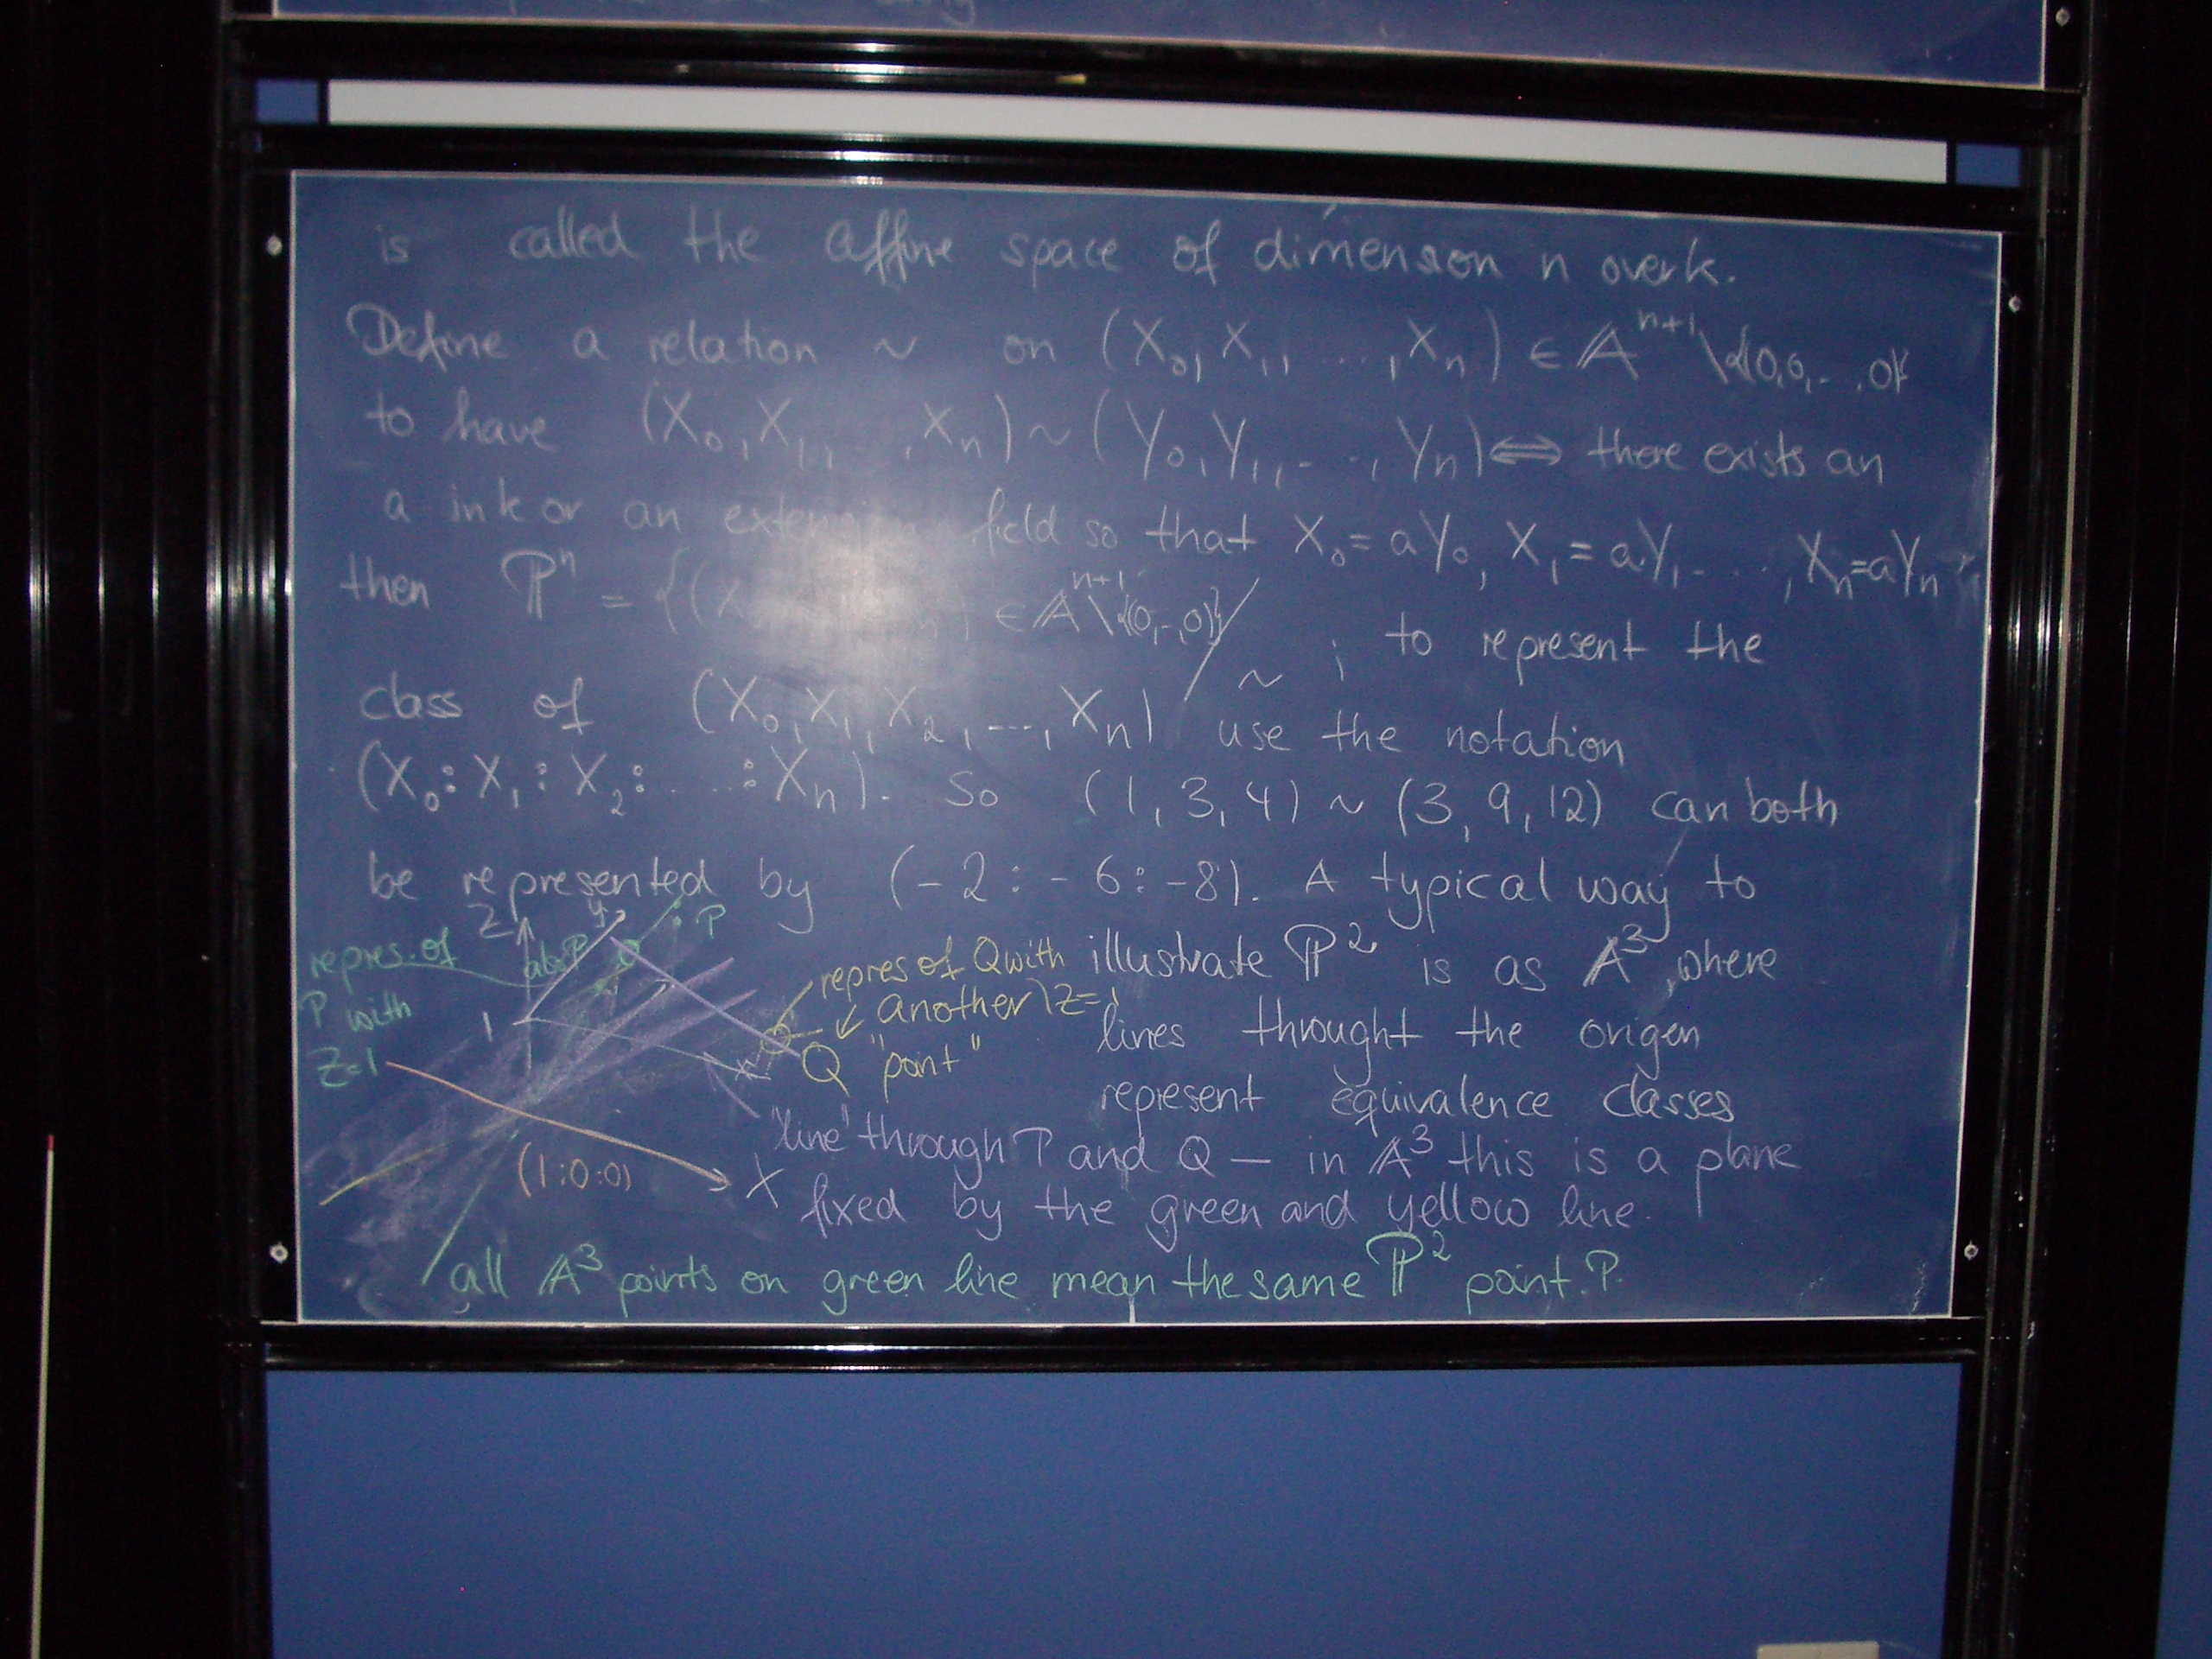 is called the affine space of dimension n over k.
Define a relation ~ on (X₀, X₁, ..., Xₙ) ∈ 𝔸ⁿ⁺¹\{(0,0,...,0)}
to have (X₀, X₁, ..., Xₙ) ~ (Y₀, Y₁, ..., Yₙ) ⟺ there exists an
a in k or an extension field so that X₀ = aY₀, X₁ = aY₁ ..., Xₙ = aYₙ
then ℙⁿ = {(X ) ∈ 𝔸ⁿ⁺¹\{(0,..,0)}/~ ; to represent the
class of (X₀, X₁, X₂, ..., Xₙ) use the notation
(X₀:X₁:X₂: ... :Xₙ). So (1,3,4) ~ (3,9,12) can both
be represented by (-2:-6:-8). A typical way to
illustrate ℙ² is as 𝔸³, where
lines throught the origen
represent equivalence classes
Z
y
P
repres. of
P with
Z=1
also P
1
repres of Q with
Z=1
another
"point"
Q
X
(1:0:0)
"line" through P and Q — in 𝔸³ this is a plane
fixed by the green and yellow line.
all 𝔸³ points on green line mean the same ℙ² point P.